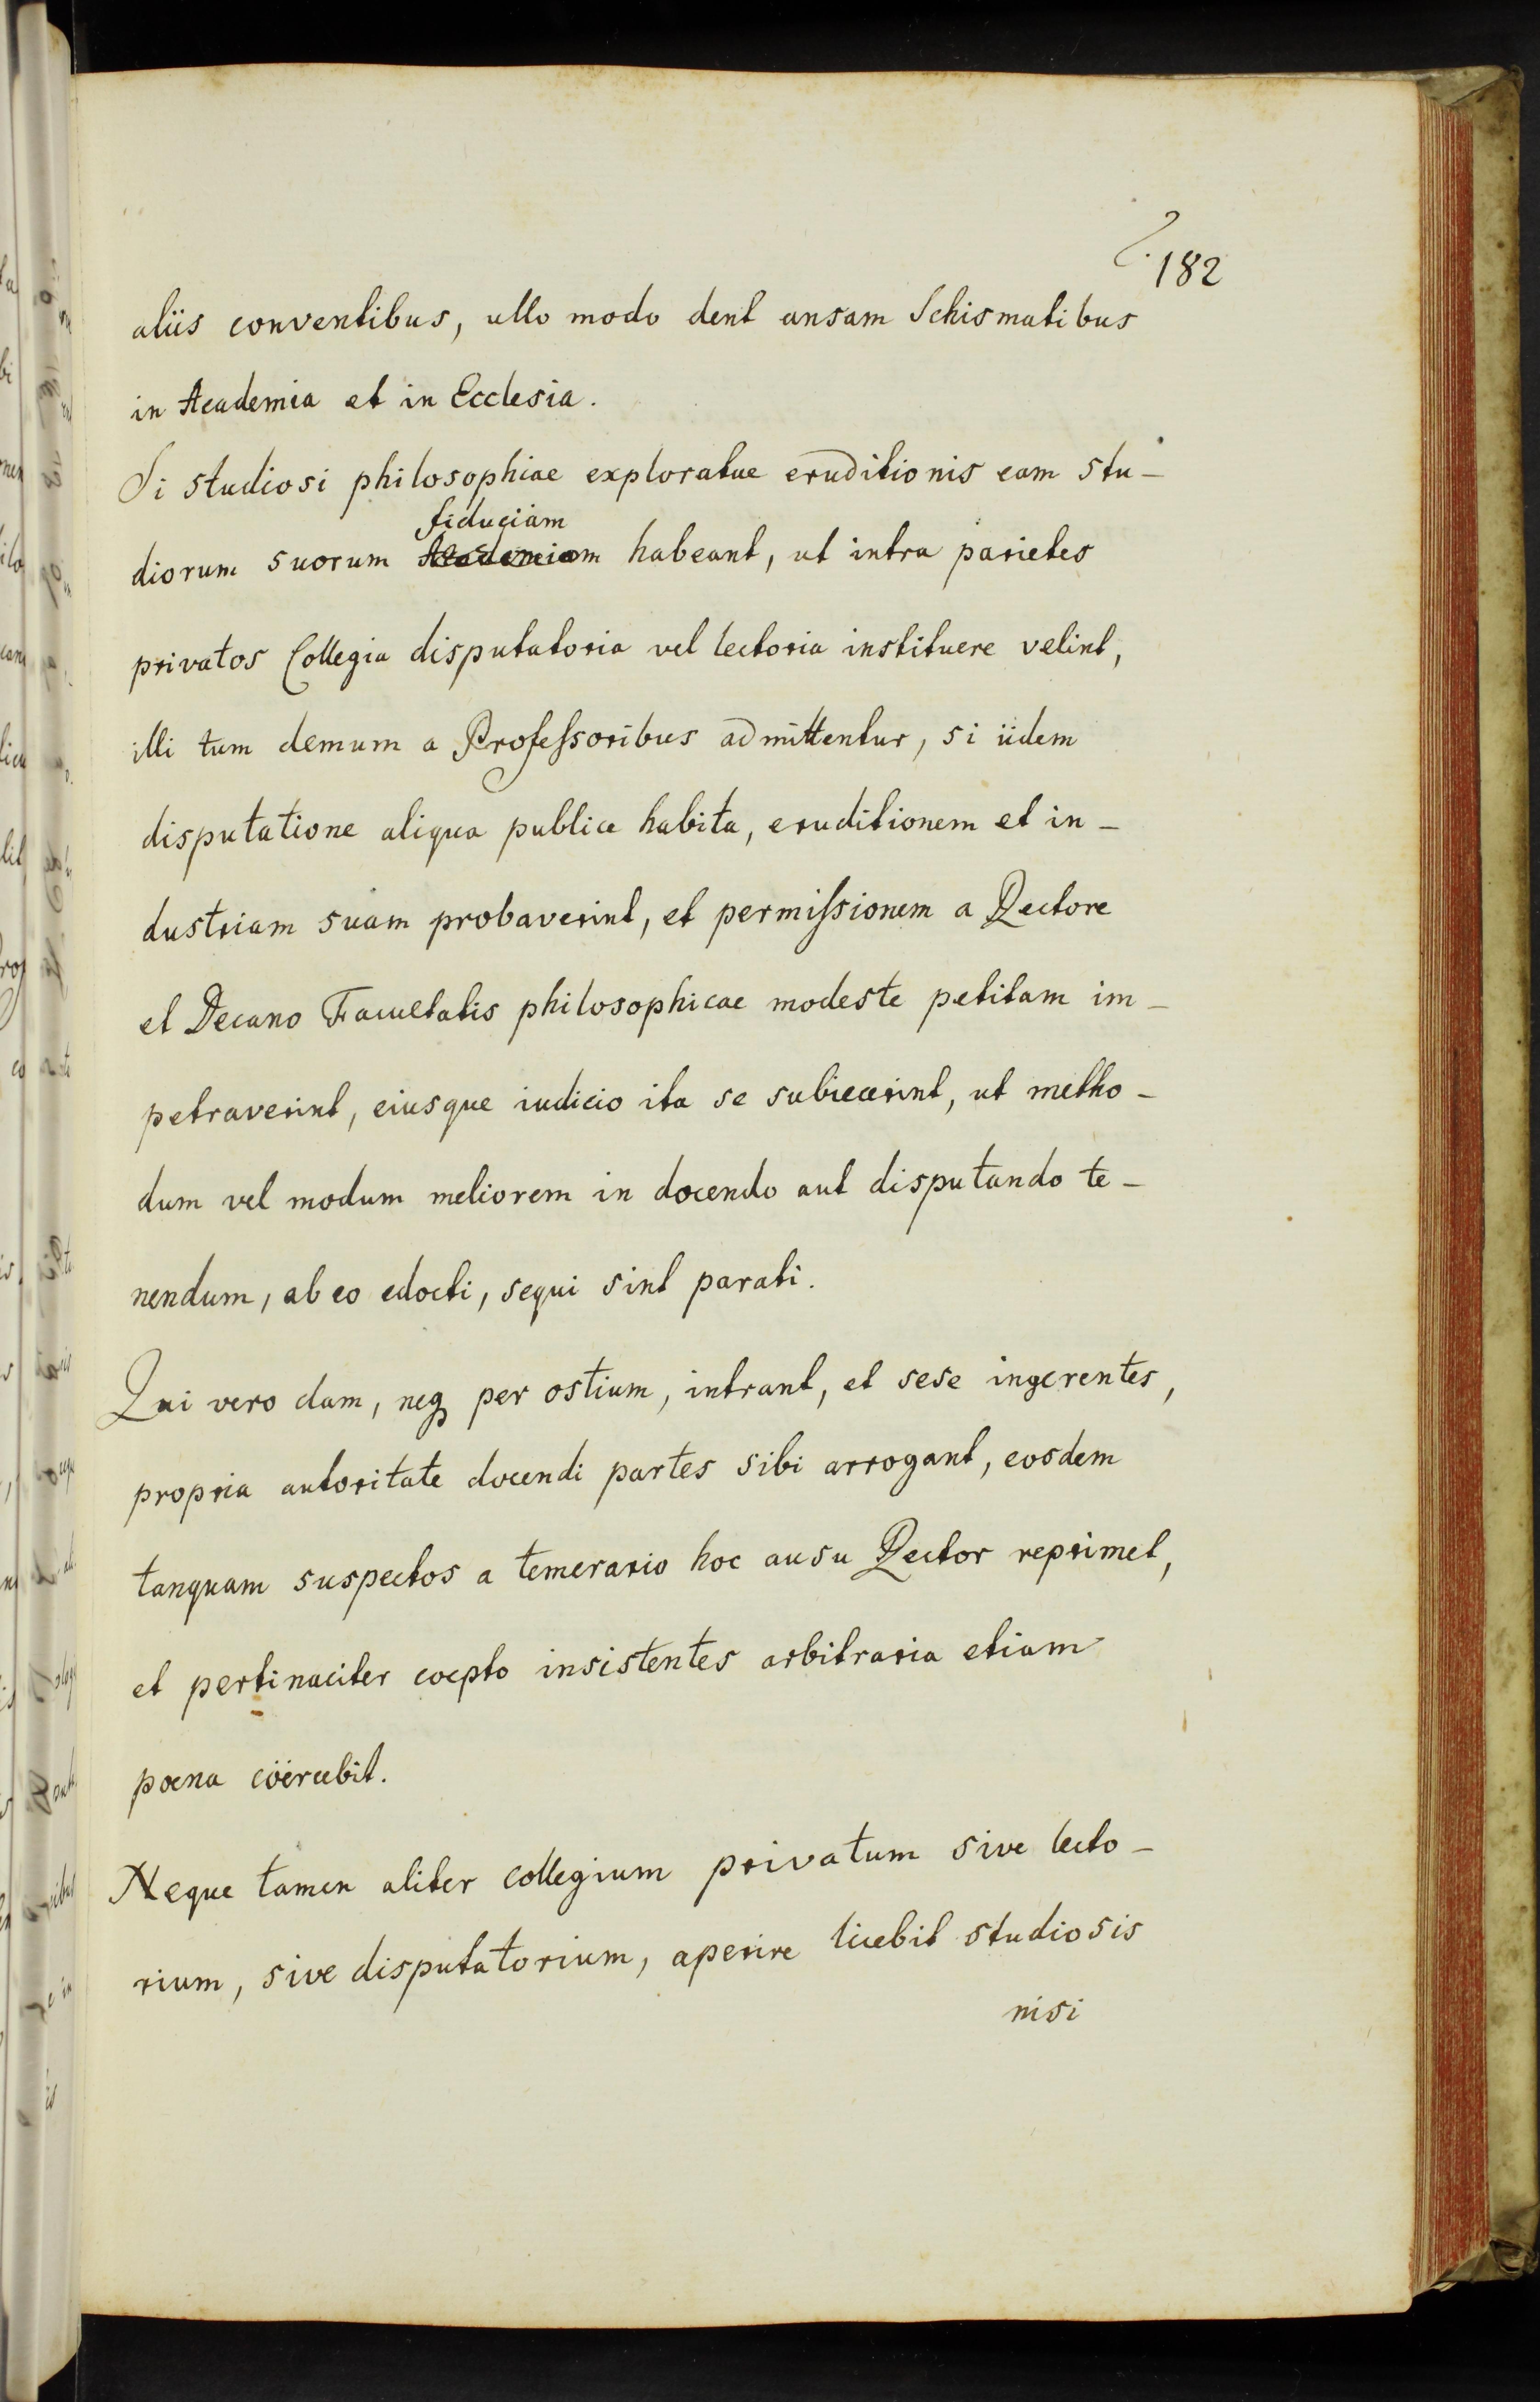 182
aliis conventibus, ullo modo dent ansam Schismatibus
in Academia et in Ecclesia.
Si studiosi philosophiae exploratae eruditionis eam stu-
fiduciam
diorum suorum Academiam habeant, ut intra parietes
privatos Collegia disputatoria vel lectoria instituere velint,
illi tum demum a Profeſsoribus admittentur, si iidem
disputatione aliqua publice habita, eruditionem et in-
dustriam suam probaverint, et permiſsionem a Rectore
et Decano Facultatis philosophicae modeste petitam im-
petraverint, eiusque iudicio ita se subiecerint, ut metho-
dum vel modum meliorem in docendo aut disputando te-
nendum, ab eo edocti, sequi sint parati.
Qui vero clam, neq per ostium, intrant, et sese ingerentes,
propria autoritate docendi partes sibi arrogant, eosdem
tanquam suspectos a temerario hoc ausu Rector reprimet,
et pertinaciter coepto insistentes arbitraria etiam
poena coërcebit.
Neque tamen aliter collegium privatum sive lecto-
rium, sive disputatorium, aperire licebit studiosis
nisi